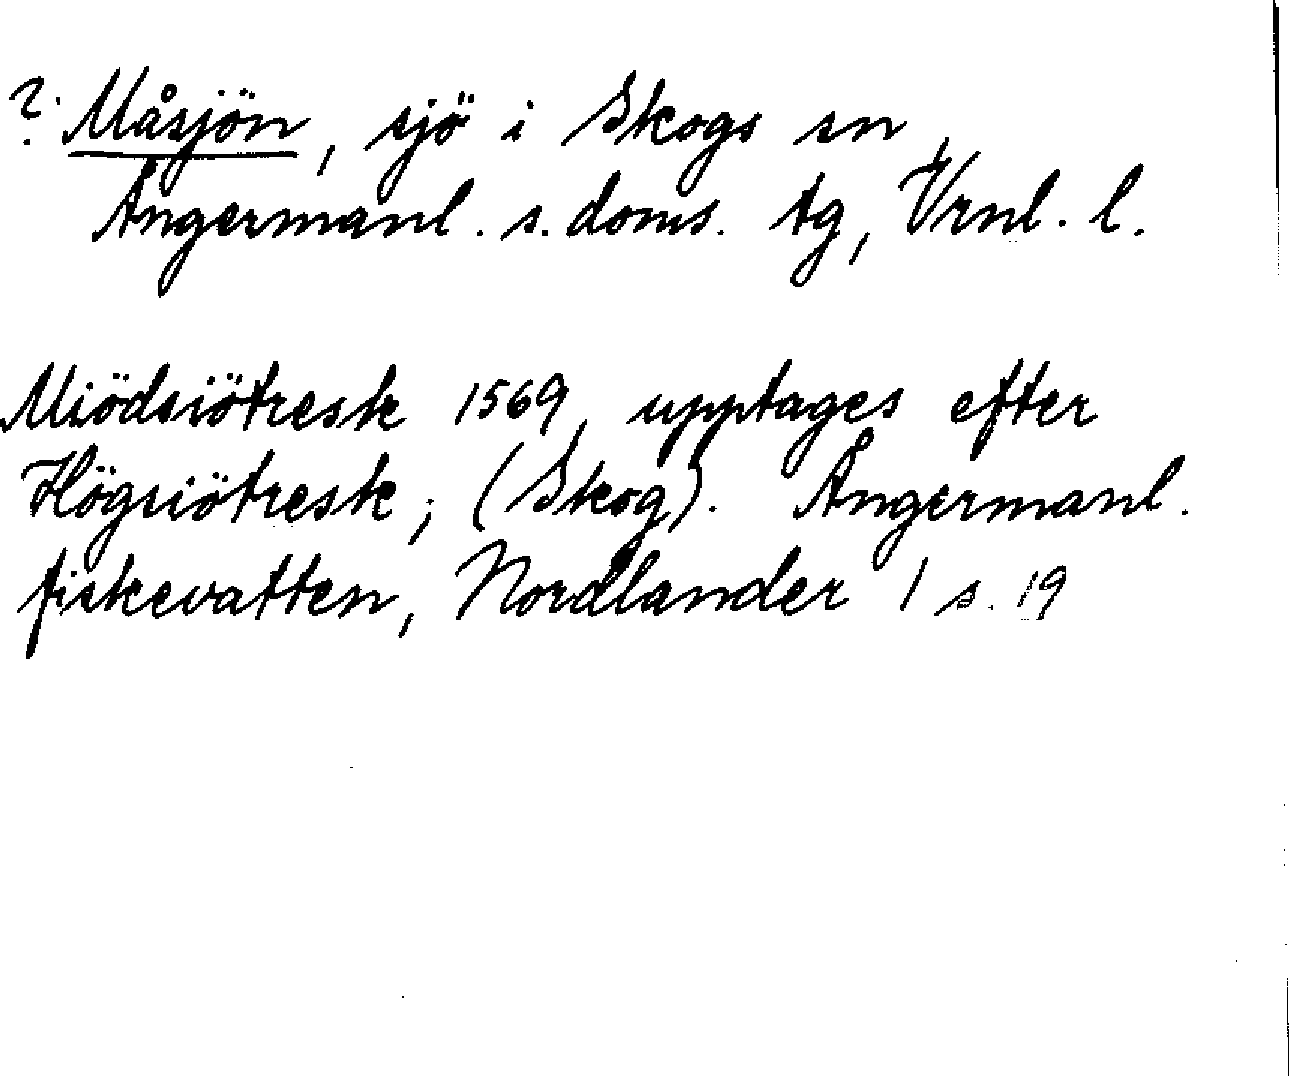 ? Måsjön, sjö i Skogs sn,
Ångermanl. s. doms. tg, Vrnl. l.
Miödsiötresk 1569, upptages efter
Högsiötresk; (Skog). Ångermanl.
fiskevatten, Nordlander 1 s. 19